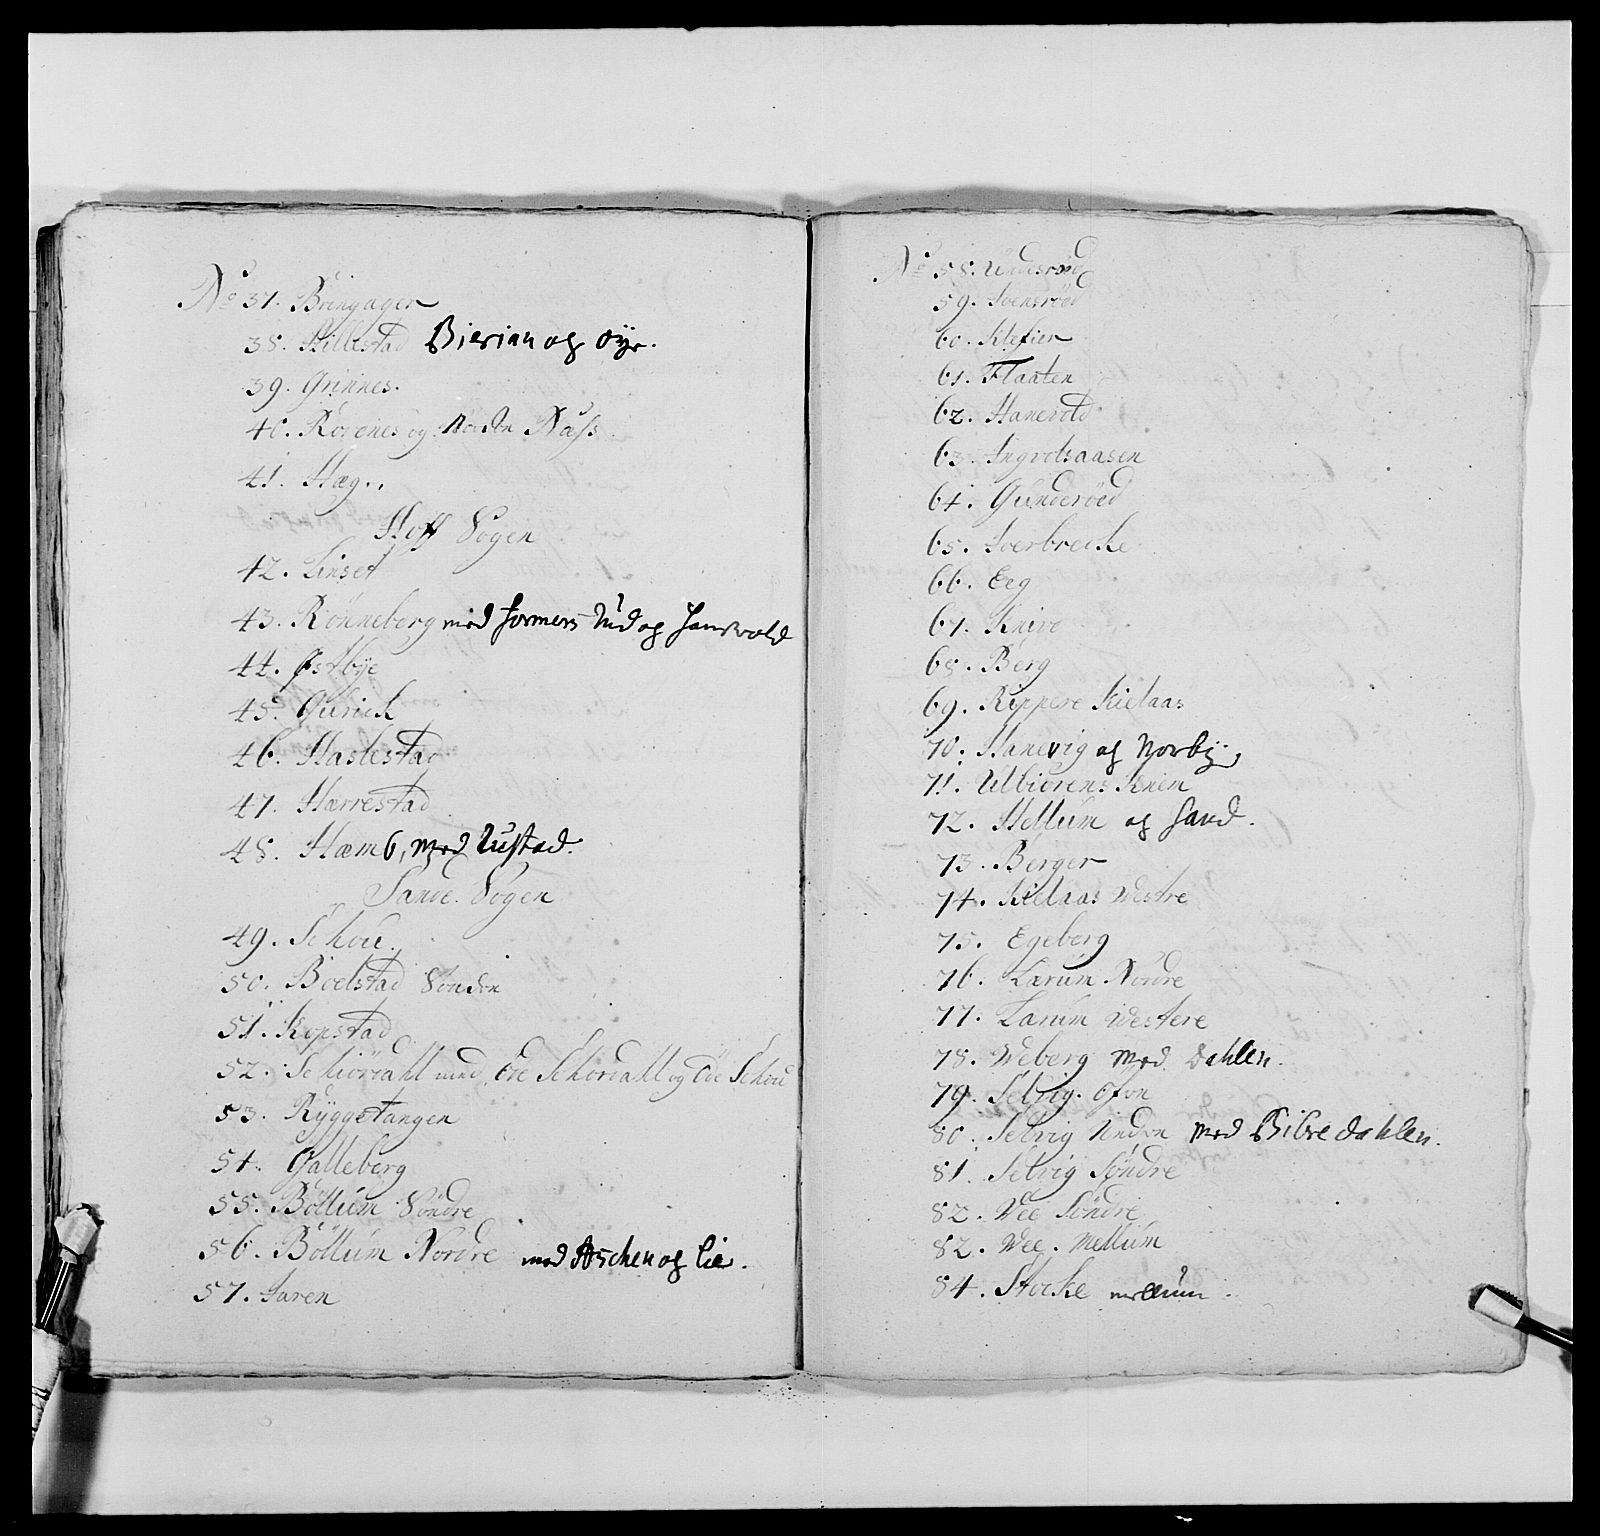 No 37. Bringager
38. Hillestad Bierian og Øye.
39. Grinnes.
40. Rörenes og Norden Næss
41. Hæg..
Hoff Sogen
42. Linset
43. Rönneberg med Sormers Rud og
44. Østbÿe
45. Gurick
46. Haslestad
47. Harrestad
48. Hæmb, med Rustad.
Sande Sogen
49. Schou.
50. Boelstad Sönden
51. Kopstad
52. Schiördahl med Öde Schördahl og Öde Schou
53. Rÿggetangen
54. Galleberg
55. Böllum Söndre
56. Böllum Nordre med Aschen og Lie.
57. Jaren
No 58. Undesröd
59. Svensröed
60. Klefier
61. Flaaten
62. Hanevold
63. Ingvolsaasen
64. Gunderöed
65. Sverbrecke
66. Eeg
67. Knive
68. Berg
69. Rippere Kielaas
70. Hanevig og Norbÿ
71. Ulbiörens Knem
72. Hellum og Sand.
73. Berger
74. Kielaas Westre
75. Egeberg
76. Lærum Nordre
77. Larum Westere
78. Weberg med Dahlen.
79. Selvig Ofvn
80. Selvig Neden med Bibre dahlen.
81. Selvig Söndre
82. Vee Söndre
82. Vee Mellum
84. Stocke mellum.